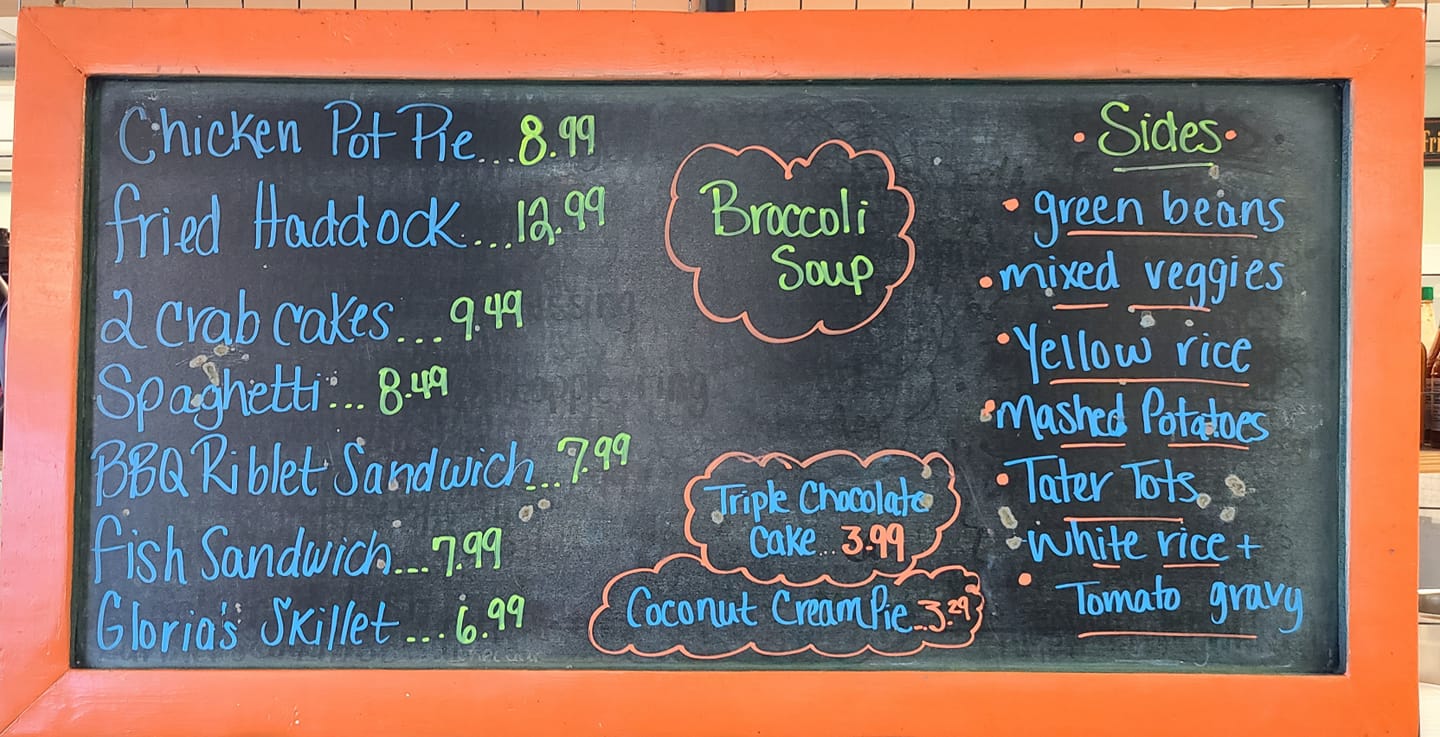 Chicken Pot Pie...8.99
fried Haddock...12.99
2 crab cakes...9.49
Spaghetti...8.49
BBQ Riblet Sandwich...7.99
fish Sandwich...7.99
Gloria's Skillet...6.99
Broccoli
Soup
Triple Chocolate
Cake...3.99
Coconut Cream Pie...3.29
• Sides •
• green beans
• mixed veggies
• Yellow rice
• Mashed Potatoes
• Tater Tots
• White rice +
• Tomato gravy